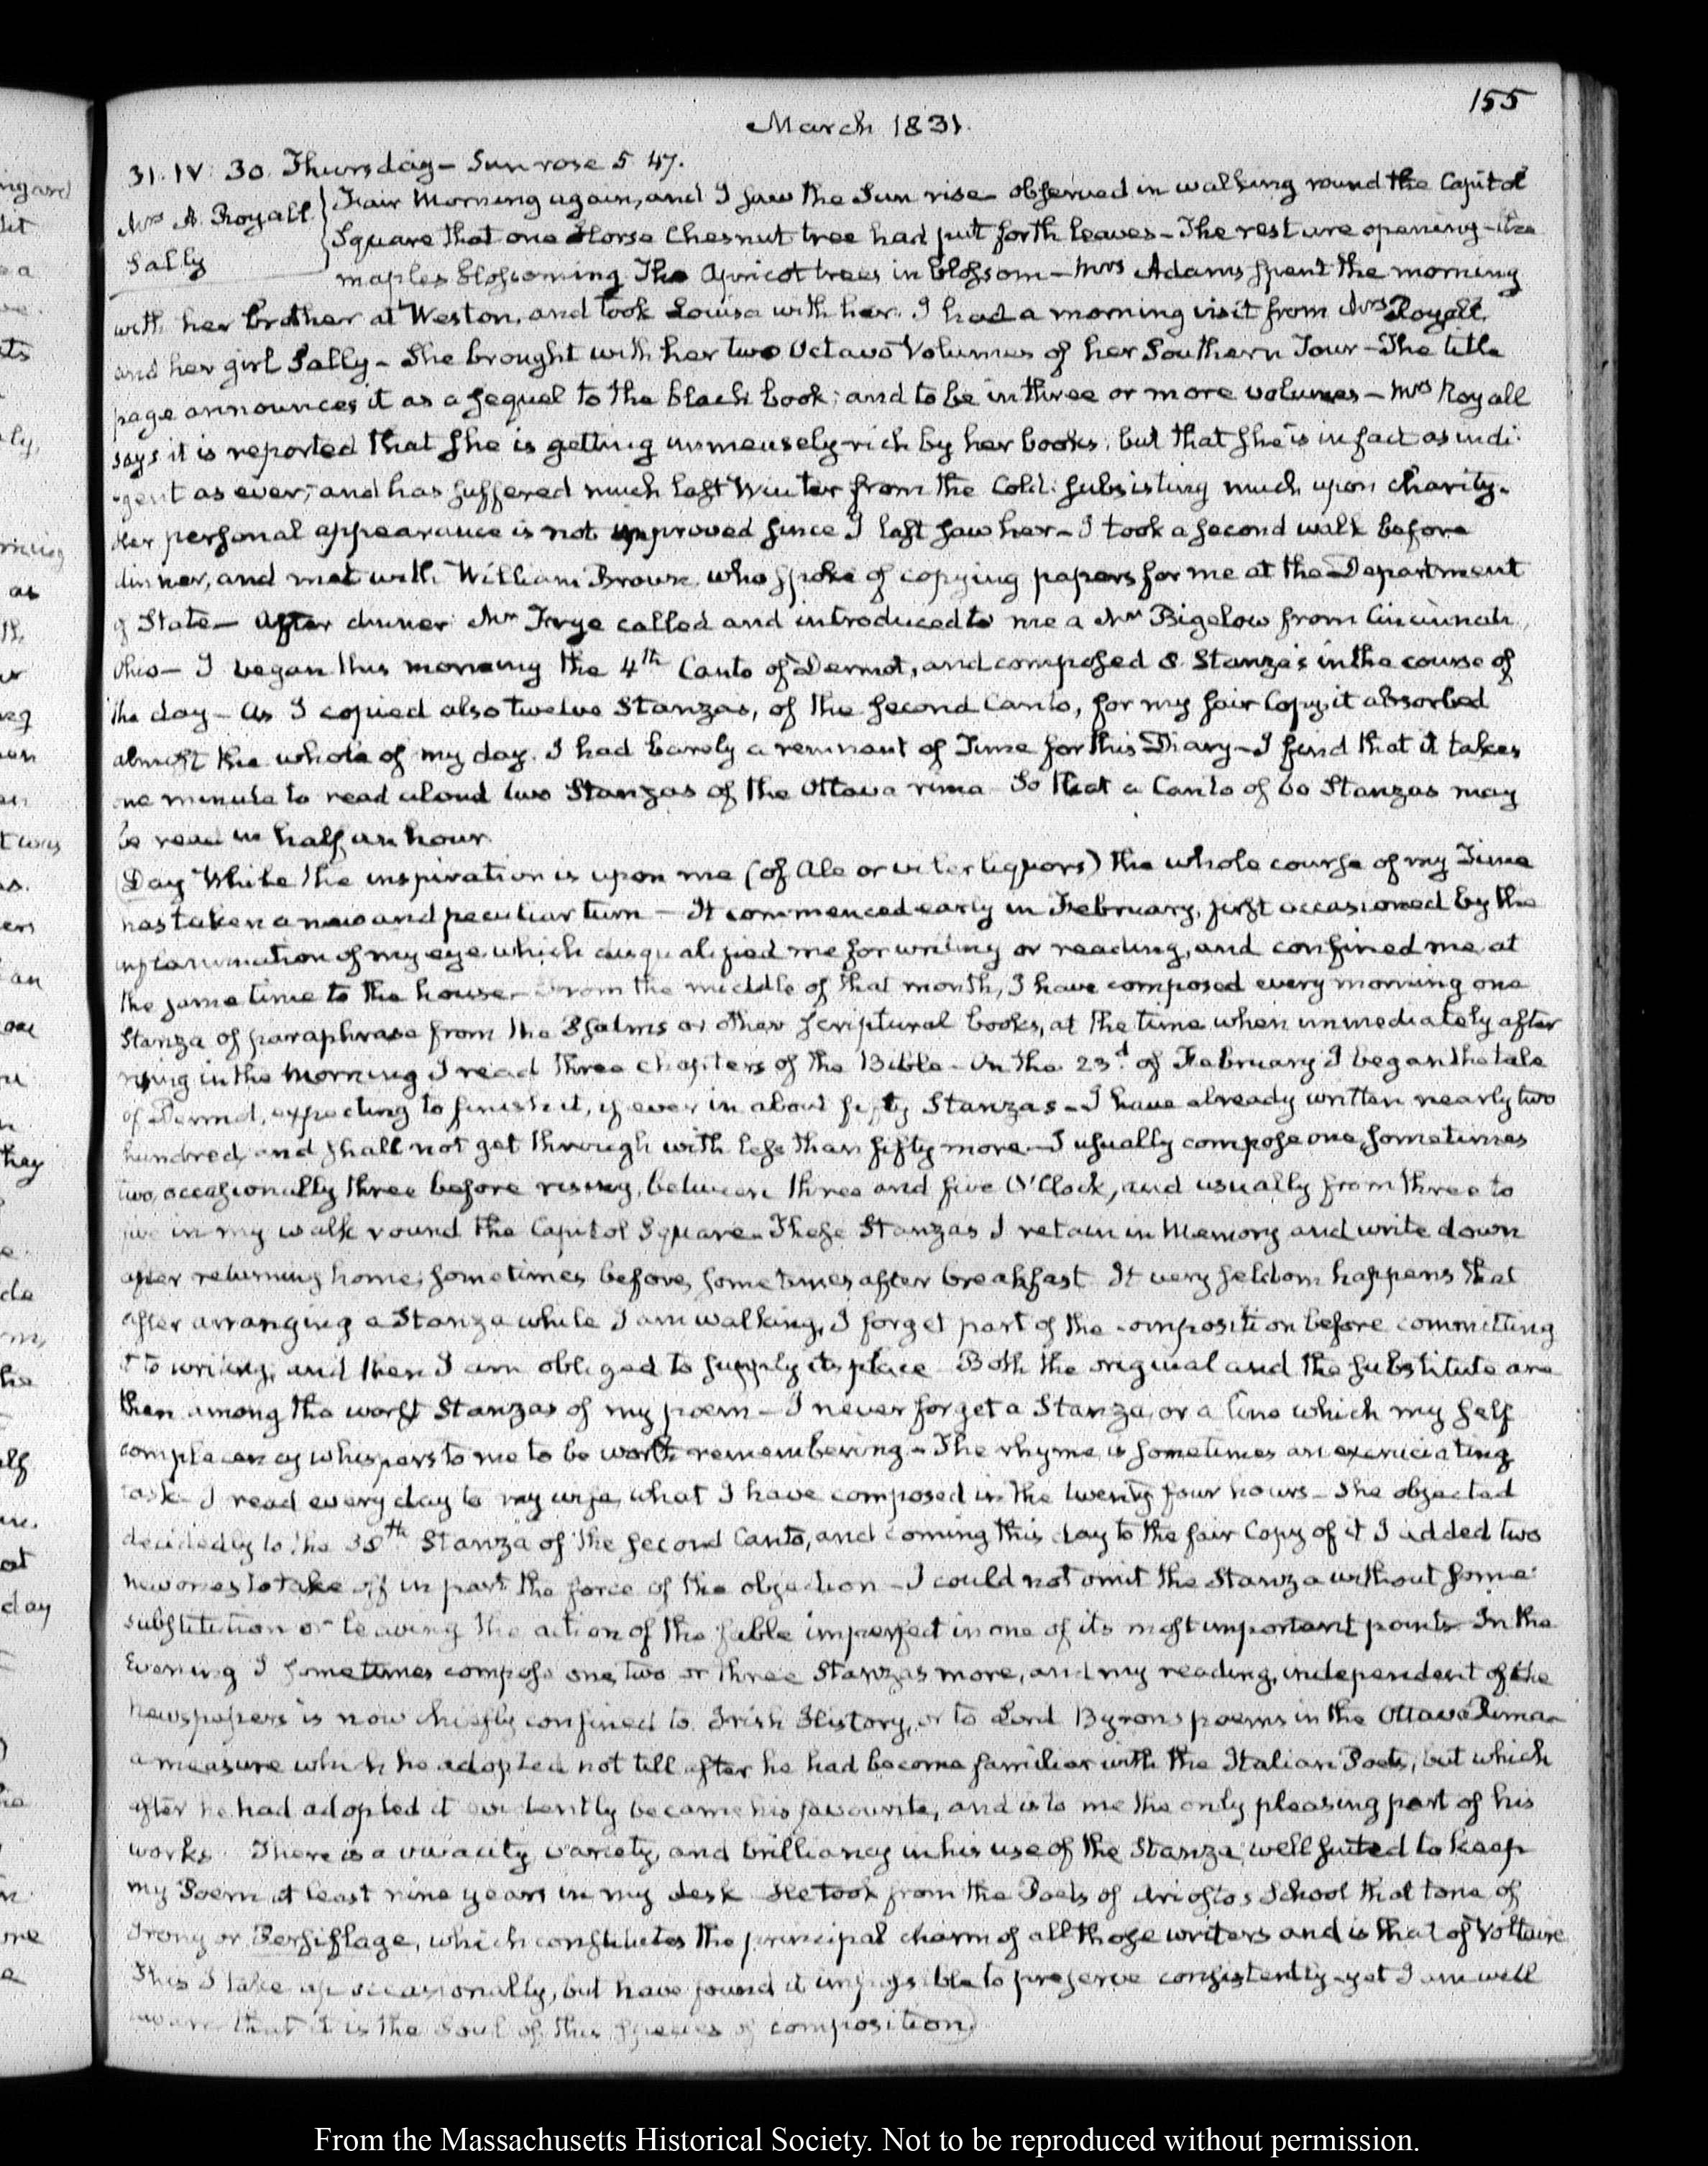 155
March 1831.
31. IV: 30. Thursday — Sun rose 5. 47.
Mrs A. Royall.
Sally
Fair Morning again, and I saw the Sun rise — observed in walking round the Capitol
Square that one Horse Chesnut tree had put forth leaves — The rest are opening — the
maples blossoming. The Apricot trees in blossom — Mrs Adams spent the morning
with her brother at Weston, and took Louisa with her. I had a morning visit from Mrs Royall,
and her girl Sally — She brought with her two Octavo Volumes of her Southern Tour — The title
page announces it as a sequel to the black book; and to be in three or more volumes — Mrs Royall
says it is reported that she is getting immensely rich by her books; but that she is in fact as indi-
-gent as ever; and has suffered much last Winter from the Cold: subsisting much upon charity.
Her personal appearance is not improved since I last saw her — I took a second walk before
dinner, and met with William Brown who spoke of copying papers for me at the Department
of State — After dinner Mr Frye called and introduced to me a Mr Bigelow from Cincinnati,
Ohio — I began this morning the 4th Canto of Dermot, and composed 8. Stanza's in the course of
the day — As I copied also twelve Stanzas, of the second Canto, for my fair Copy, it absorbed
almost the whole of my day. I had barely a remnant of Time for this Diary — I find that it takes
one minute to read aloud two Stanzas of the Ottava rima — So that a Canto of 60 Stanzas may
be read in half an hour.
(Day While the inspiration is upon me (of Ale or viler liquors) the whole course of my Time
has taken a new and peculiar turn — It commenced early in February, first occasioned by the
inflammation of my eye which disqualified me for writing or reading, and confined me at
the same time to the house — From the middle of that month, I have composed every morning one
Stanza of paraphrase from the Psalms or other scriptural books, at the time when immediately after
rising in the morning I read three chapters of the Bible — On the 23d of February I began the tale
of Dermot, expecting to finish it, if ever in about fifty Stanzas — I have already written nearly two
hundred, and shall not get through with less than fifty more — I usually compose one, sometimes
two, occasionally three before rising, between three and five O'Clock, and usually from three to
five in my walk round the Capitol Square — These Stanzas I retain in Memory and write down
after returning home; sometimes before, sometimes after breakfast. It very seldom happens that
after arranging a Stanza while I am walking, I forget part of the composition before committing
it to writing, and then I am obliged to supply its place — Both the original and the substitute are
then among the worst Stanzas of my poem — I never forget a Stanza, or a line which my self
complacency whispers to me to be worth remembering — The rhyme is sometimes an excruciating
task — I read every day to my wife, what I have composed in the twenty four hours — She objected
decidedly to the 38th Stanza of the second Canto, and coming this day to the fair Copy of it I added two
new ones to take off in part the force of the objection — I could not omit the Stanza without some
substitution or leaving the action of the fable imperfect in one of its most important points. In the
Evening I sometimes compose one, two or three Stanzas more, and my reading, independent of the
newspapers is now chiefly confined to Irish History, or to Lord Byrons poems in the Ottava Rima —
a measure which he adopted not till after he had become familiar with the Italian Poets, but which
after he had adopted it evidently became his favourite, and is to me the only pleasing part of his
works. There is a vivacity, variety, and brilliancy in his use of the Stanza, well suited to keep
my Poem at least nine years in my desk — He took from the Poets of Ariosto's School that tone of
Irony or Persiflage, which constitutes the principal charm of all those writers and is that of Voltaire
This I take up occasionally, but have found it impossible to preserve consistently — yet I am well
aware that it is the Soul of this species of composition)
From the Massachusetts Historical Society. Not to be reproduced without permission.